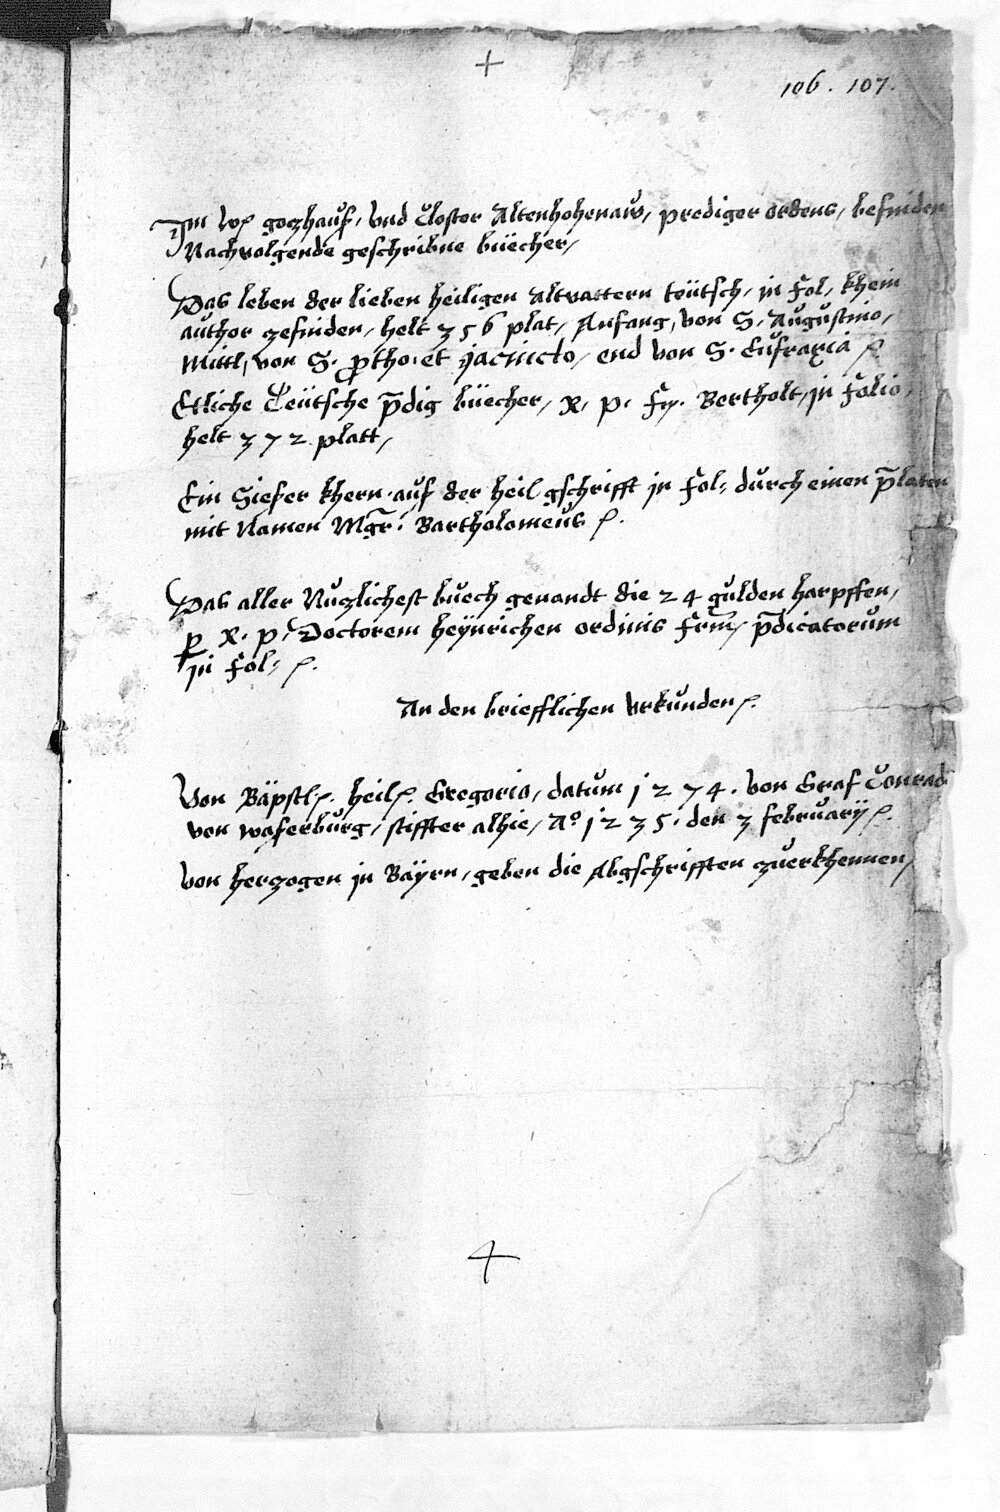 106. 107.
Im goczhauß, vnd Closter Altenhohenaw, prediger ordens, befinden
Nachvolgende geschribne büecher,
Das leben der lieben heiligen Altvattern teütsch, in Fol, khein
author zefinden, helt 356 plat, Anfang, von S. Augustino,
Mittl, von S. protho, et Jacincto, end von S. Eufraxia
Etliche Teütsche p̄dig büecher, R. P. Fr. Bertholt, in Folio,
helt 372 platt,
Ein Sieser khern auß der heil gschrifft in Fol: durch einen p̄laten
mit Namen Mgr̄: Bartholomeus
Das aller Nuzlichest buech genandt die 24 gulden harpffen,
p R. P. Doctorem heÿnrichen ordinis Frm̄, p̄dicatorum
in Fol:
An den briefflichen Vrkunden
Von Bäpstl. heil. Gregorio, datum 1274. von Graf Conrad
von waserburg, stiffter alhie, Aº 1235. den 3 februarÿ.
Von herzogen in Bäyrn, geben die Abgschrifften zuerkhennen,